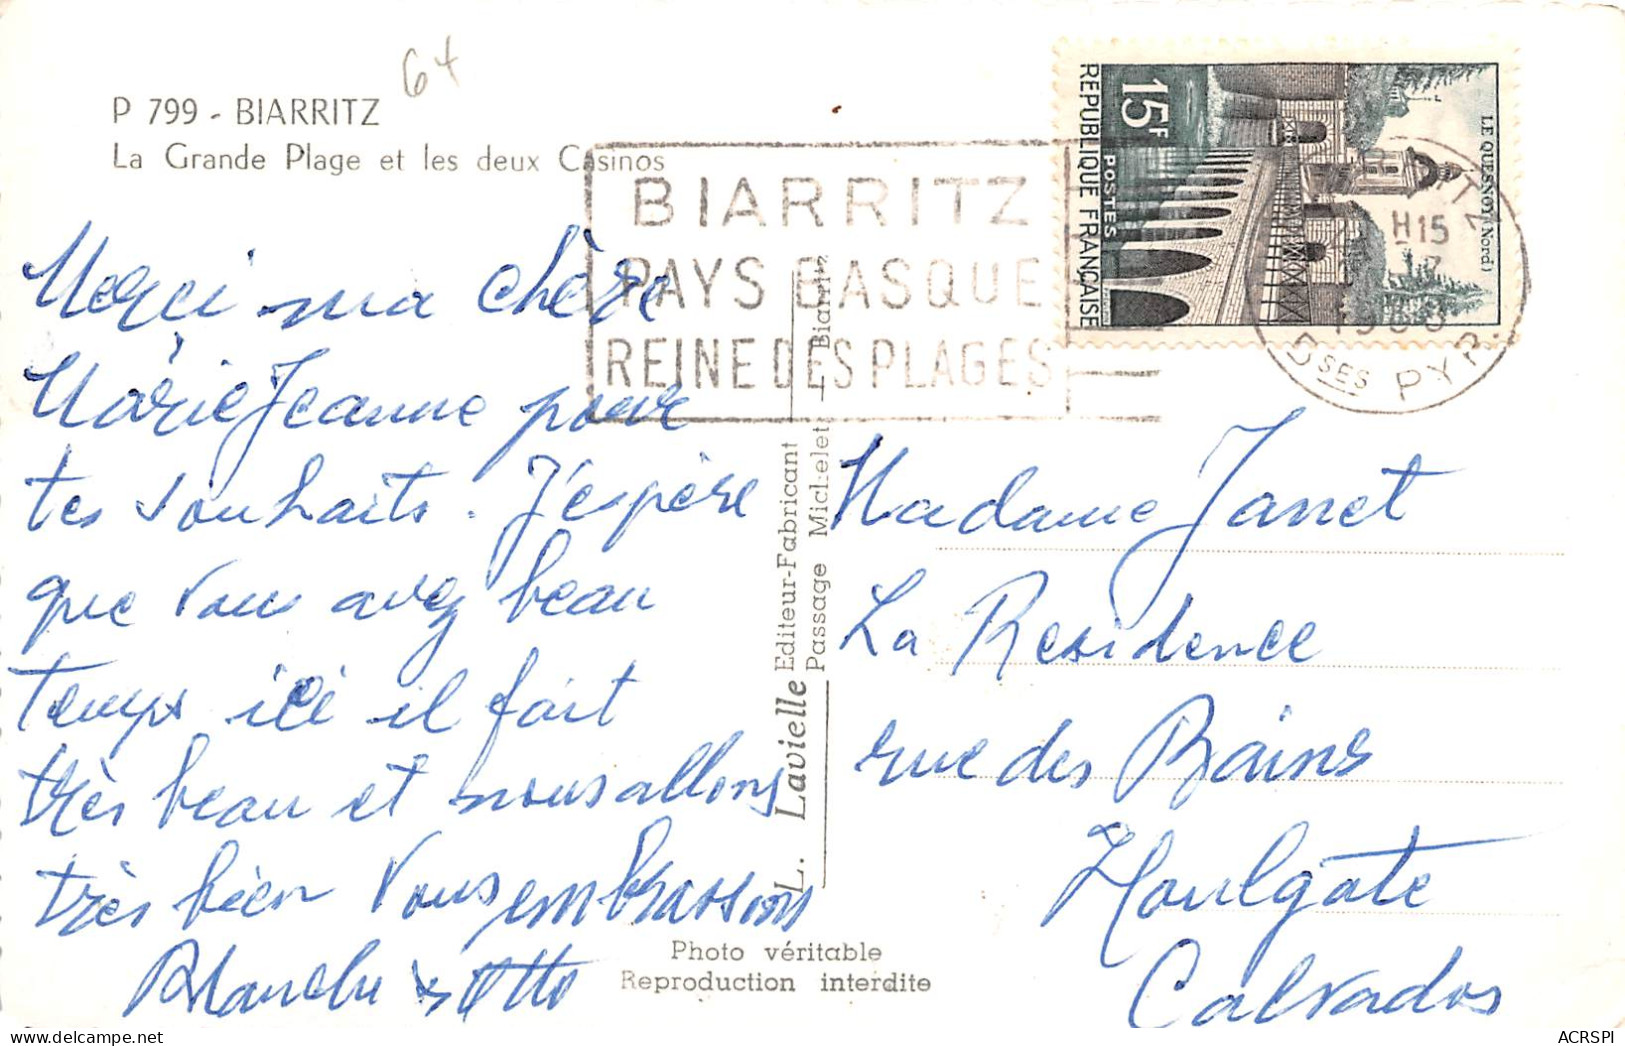 64
P 799 - BIARRITZ
La Grande Plage et les deux Casinos
BIARRITZ
PAYS BASQUE
REINE DES PLAGES
15F
POSTES
REPUBLIQUE FRANÇAISE
LE QUESNOY (Nord)
H15
BSES PYR.
Merci ma chère
Marie Jeanne pour
tes souhaits. J'espère
que vous avez beau
temps ici il fait
très beau et nous allons
très bien Vous embrassons
Blanche & Otto
L. Lavielle Editeur-Fabricant
Passage Michelet — Biarritz
Photo véritable
Reproduction interdite
Madame Janet
La Residence
rue des Bains
Houlgate
Calvados
ACRSPI